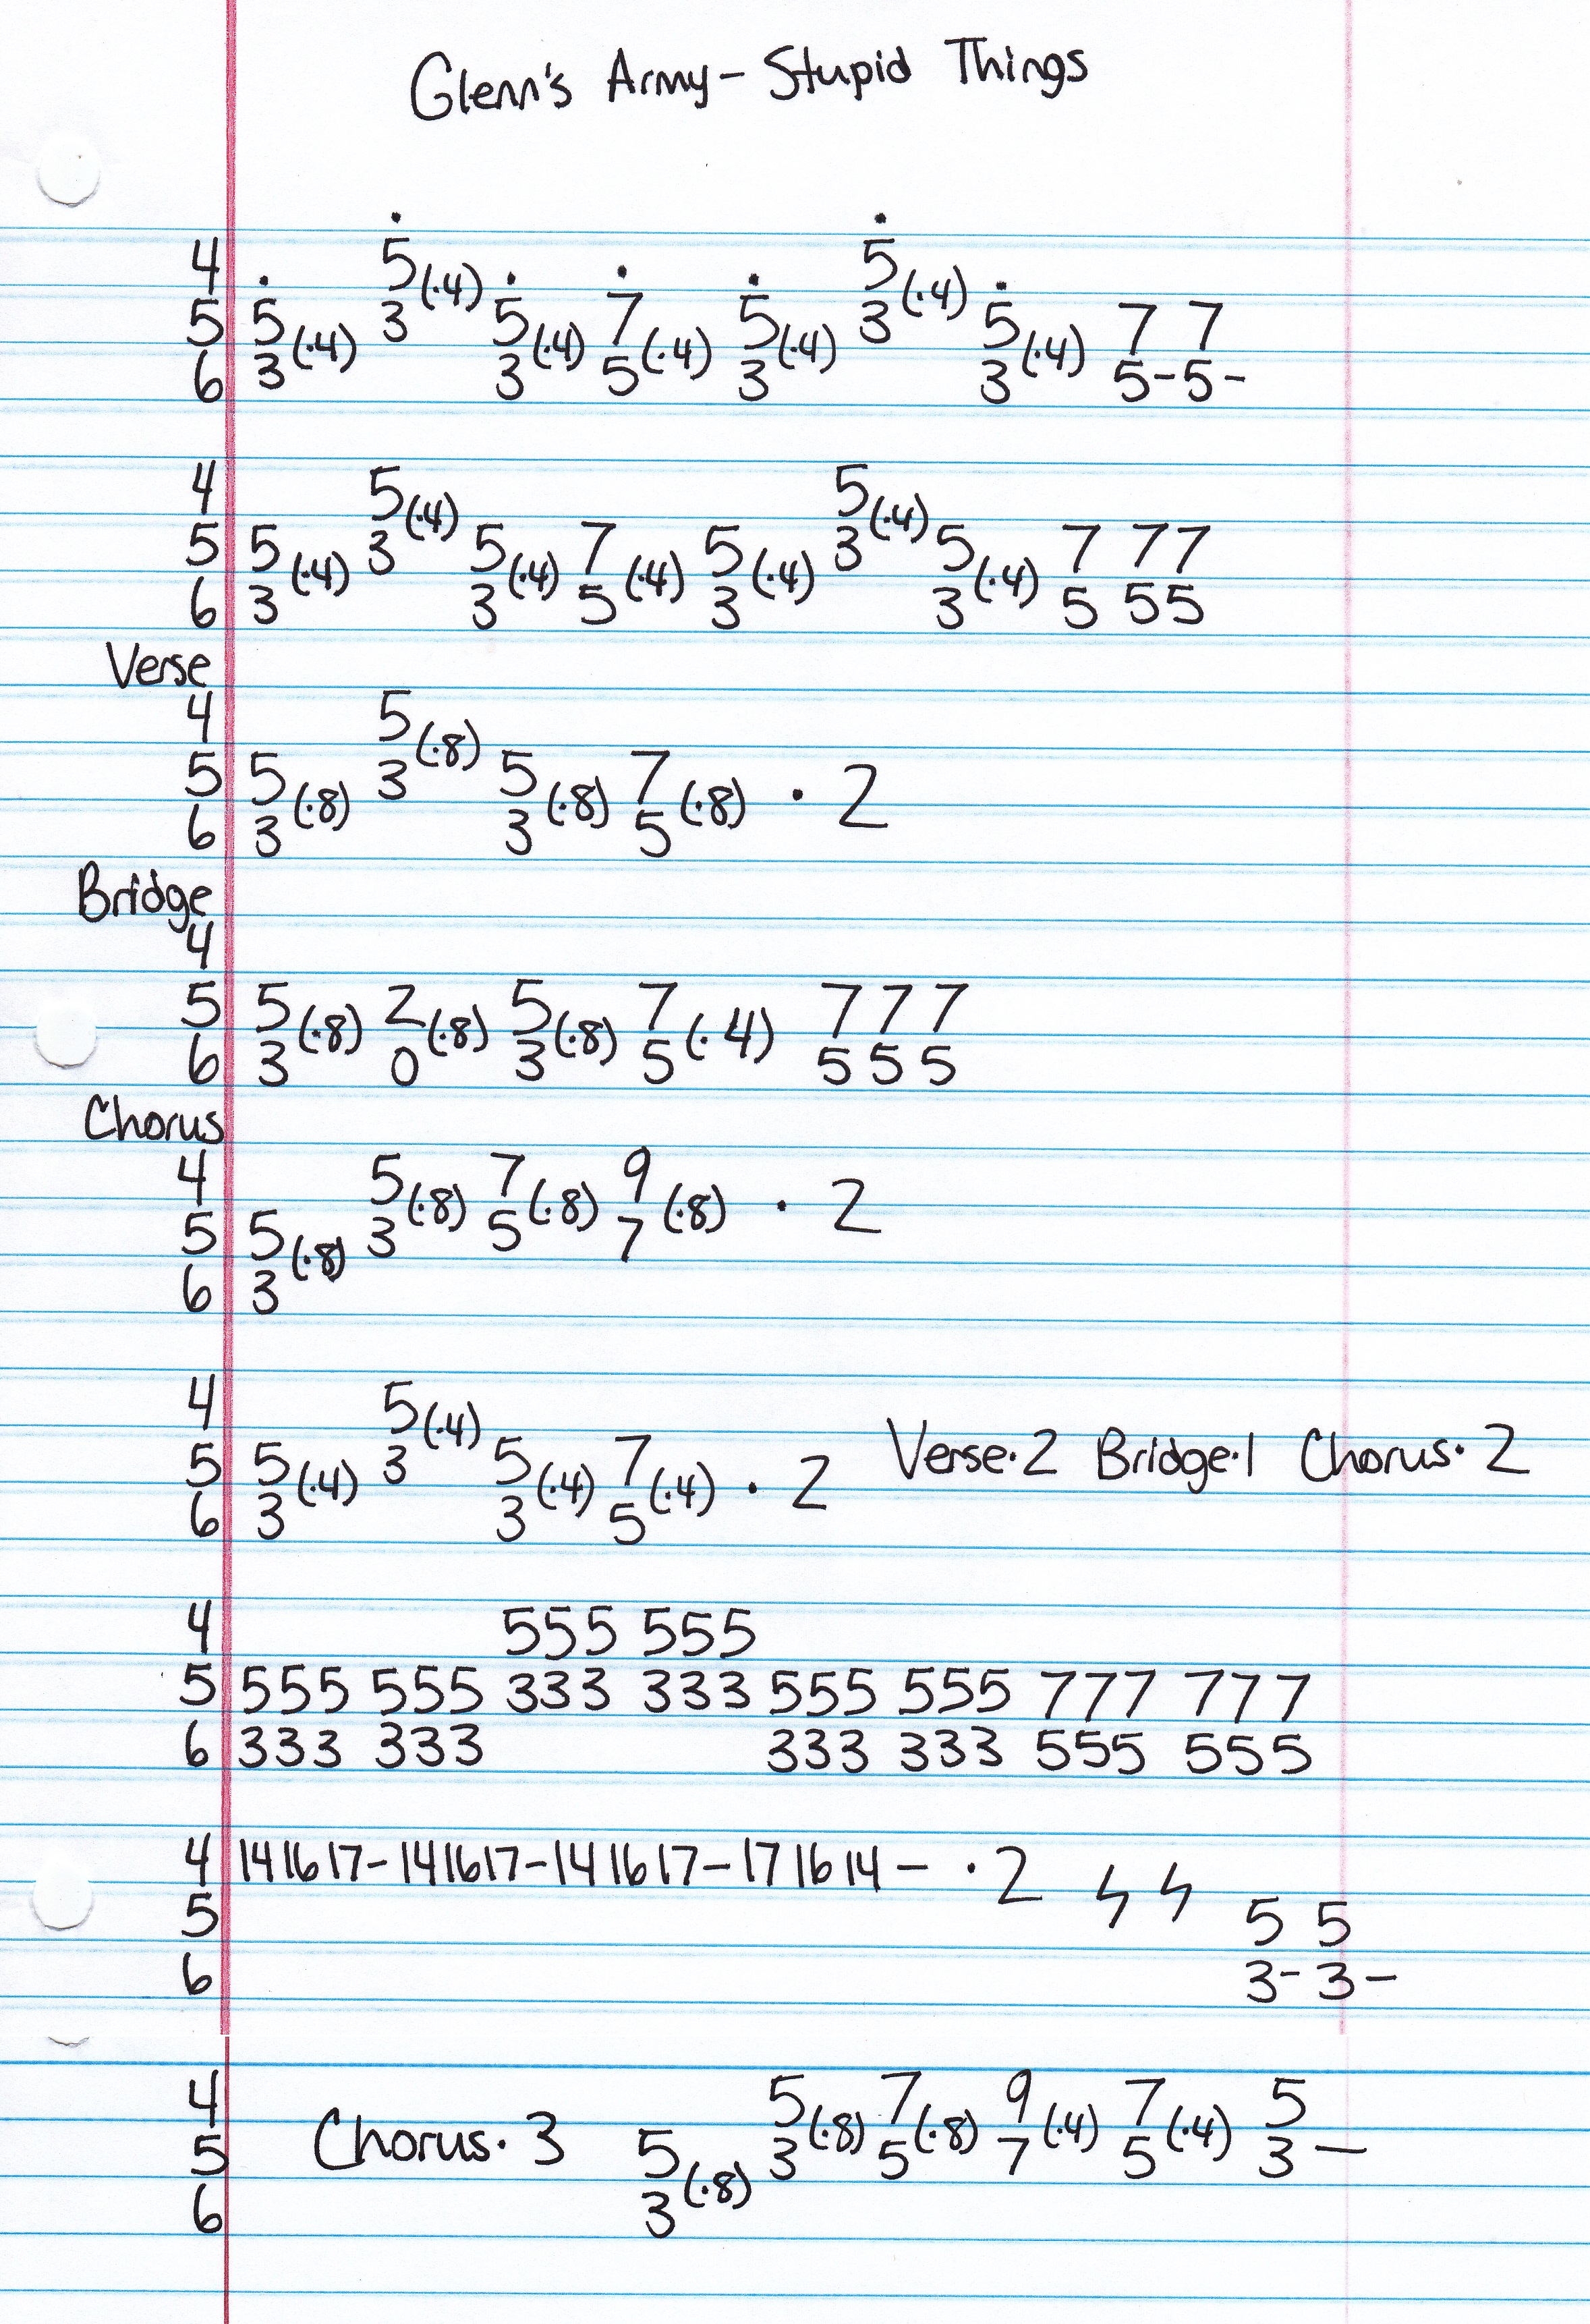 Glenn's Army - Stupid Things
4 5(·4) 5(·4)
5 5(·4) 3 5(·4) 7(·4) 5(·4) 3 5(·4) 7 7
6 3 3 5 3 3 5-5-
4 5(·4) 5(·4)
5 5(·4) 3 5(·4) 7(·4) 5(·4) 3 5(·4) 7 77
6 3 3 5 3 3 5 55
Verse
4 5(·8)
5 5(·8) 3 5(·8) 7(·8) · 2
6 3 3 5
Bridge
4
5 5(·8) 2(·8) 5(·8) 7(·4) 7 7 7
6 3 0 3 5 5 5 5
Chorus
4 5(·8) 7(·8) 9(·8) · 2
5 5(·8) 3 5 7
6 3
4 5(·4)
5 5(·4) 3 5(·4) 7(·4) · 2 Verse·2 Bridge·1 Chorus·2
6 3 3 5
4 555 555
5 555 555 333 333 555 555 777 777
6 333 333 333 333 555 555
4 14 16 17-14 16 17-14 16 17-17 16 14- ·2
5 5 5
6 3-3-
4 5(·8) 7(·8) 9(·4) 7(·4) 5
5 Chorus·3 5(·8) 3 5 7 5 3-
6 3